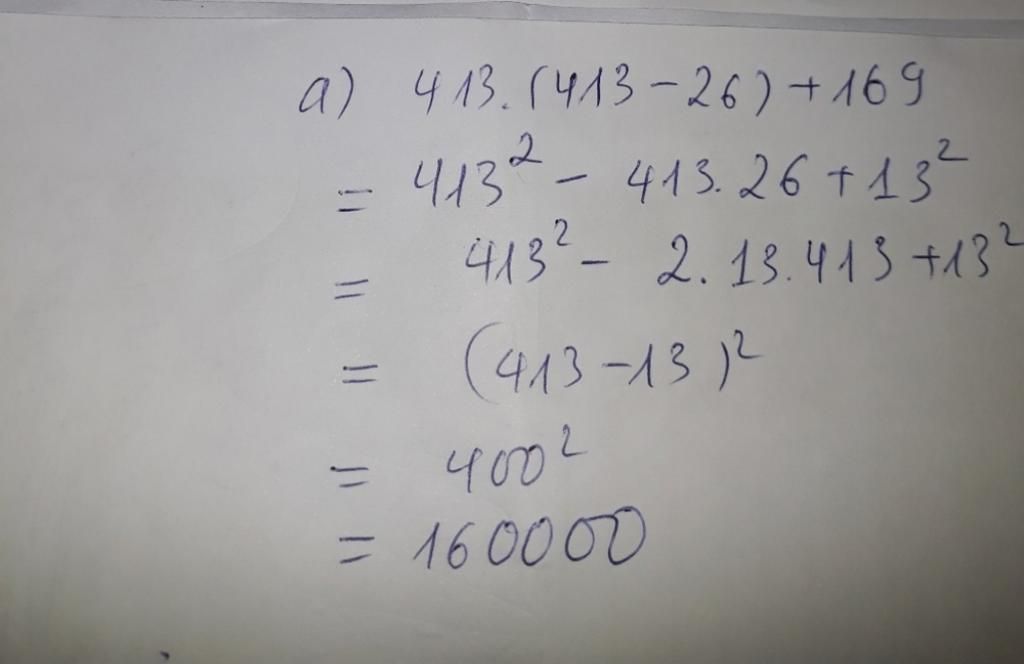 a) 413.(413-26)+169
= 413² - 413.26+13²
= 413² - 2.13.413+13²
= (413-13)²
= 400²
= 160000